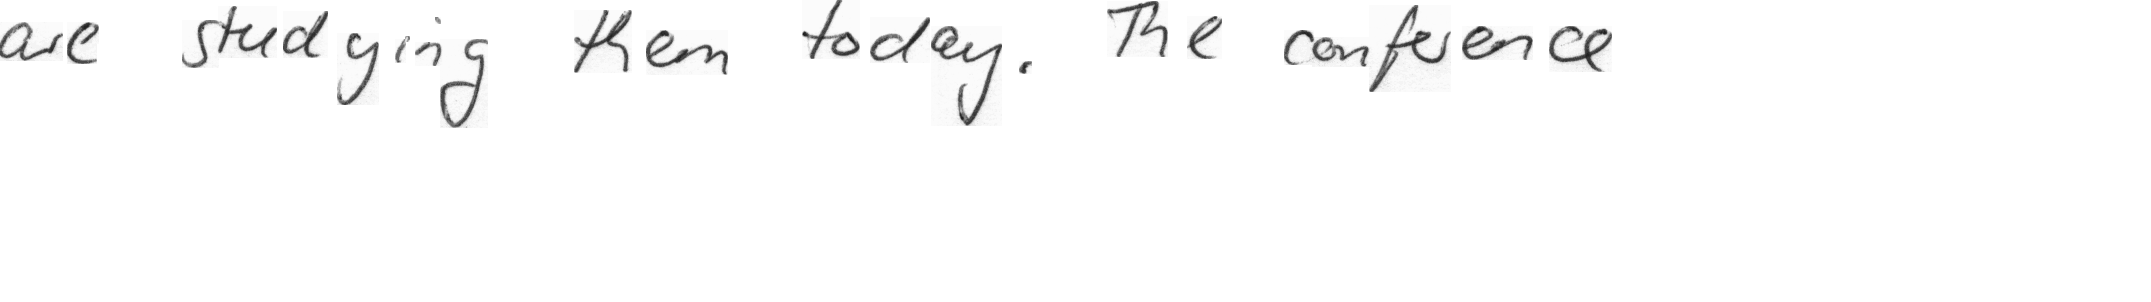 are studying them today. The conference